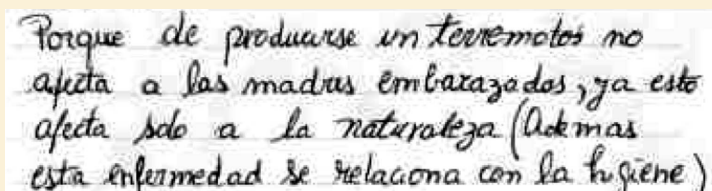 Porque de producirse un terremotos no
afecta a las madres embarazados, ya esto
afecta solo a la naturaleza (Ademas
esta enfermedad se relaciona con la higiene)